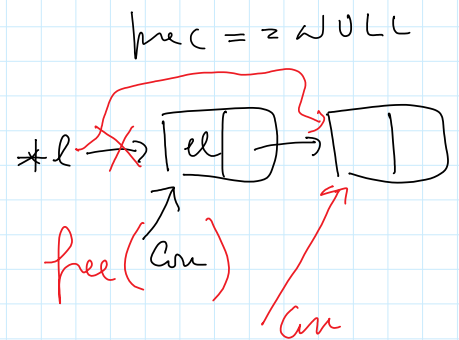 prec == NULL
*l
el
free(corr)
corr